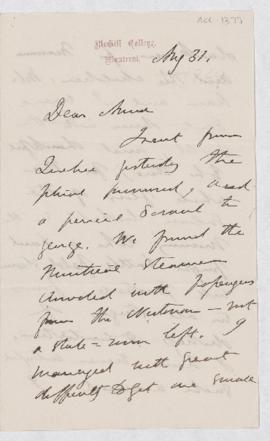 Acc 1377
McGill College,
Montreal.
Aug 31.
Dear Anna
I sent from
Quebec yesterday the
promised, and
a parcel I want to
George. We found the
Montreal Steamer
crowded with passengers
from the Nestorian - not
a state-room left. I
managed with great
difficulty to get one small